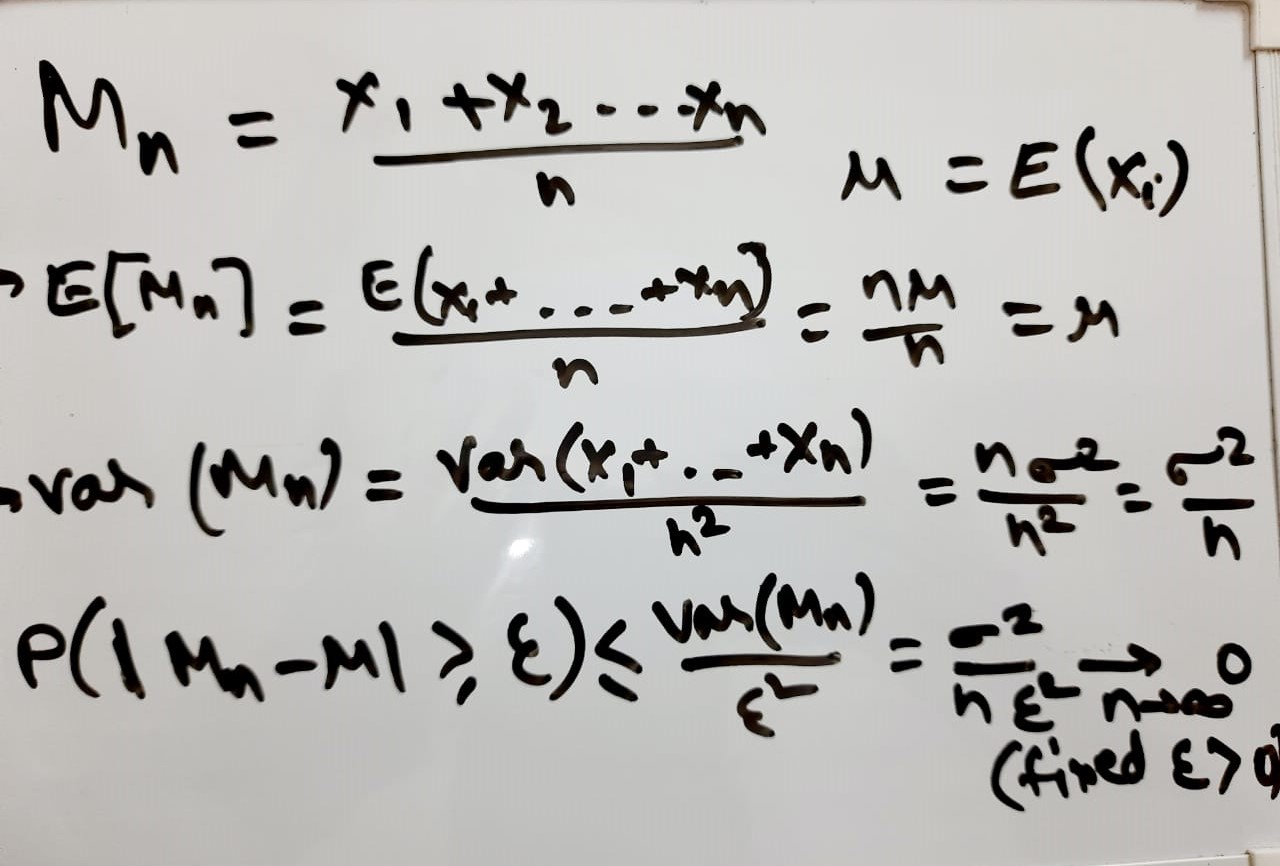 Mn = (x1 + x2 ... xn) / n     μ = E(xi)
→ E[Mn] = E(x1 + .... + xn) / n = nμ / n = μ
→ var (Mn) = Var(x1 + ... + xn) / n² = nσ² / n² = σ² / n
P(|Mn - μ| ≥ ε) ≤ Var(Mn) / ε² = σ² / nε² → 0
n→∞
(fixed ε > 0)